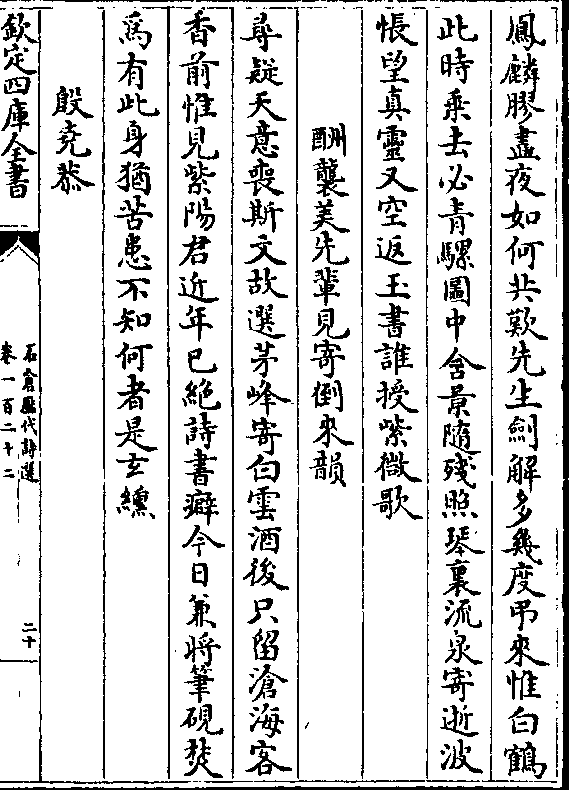 鳳麟膠盡夜如何共歎先生劍解多幾度弔來惟白鶴
此時乘去必青騾圖中含景隨殘照琴裏流泉寄逝波
悵望真靈又空返玉書誰授紫微歌
酬襲美先輩見寄倒來韻
尋疑天意喪斯文故選茅峰寄白雲酒後只留滄海客
香前惟見紫陽君近年已絶詩書癖今日兼將筆硯焚
為有此身猶苦患不知何者是玄纁
殷堯恭
欽定四庫全書
石倉歷代詩選
卷一百二十二
二十